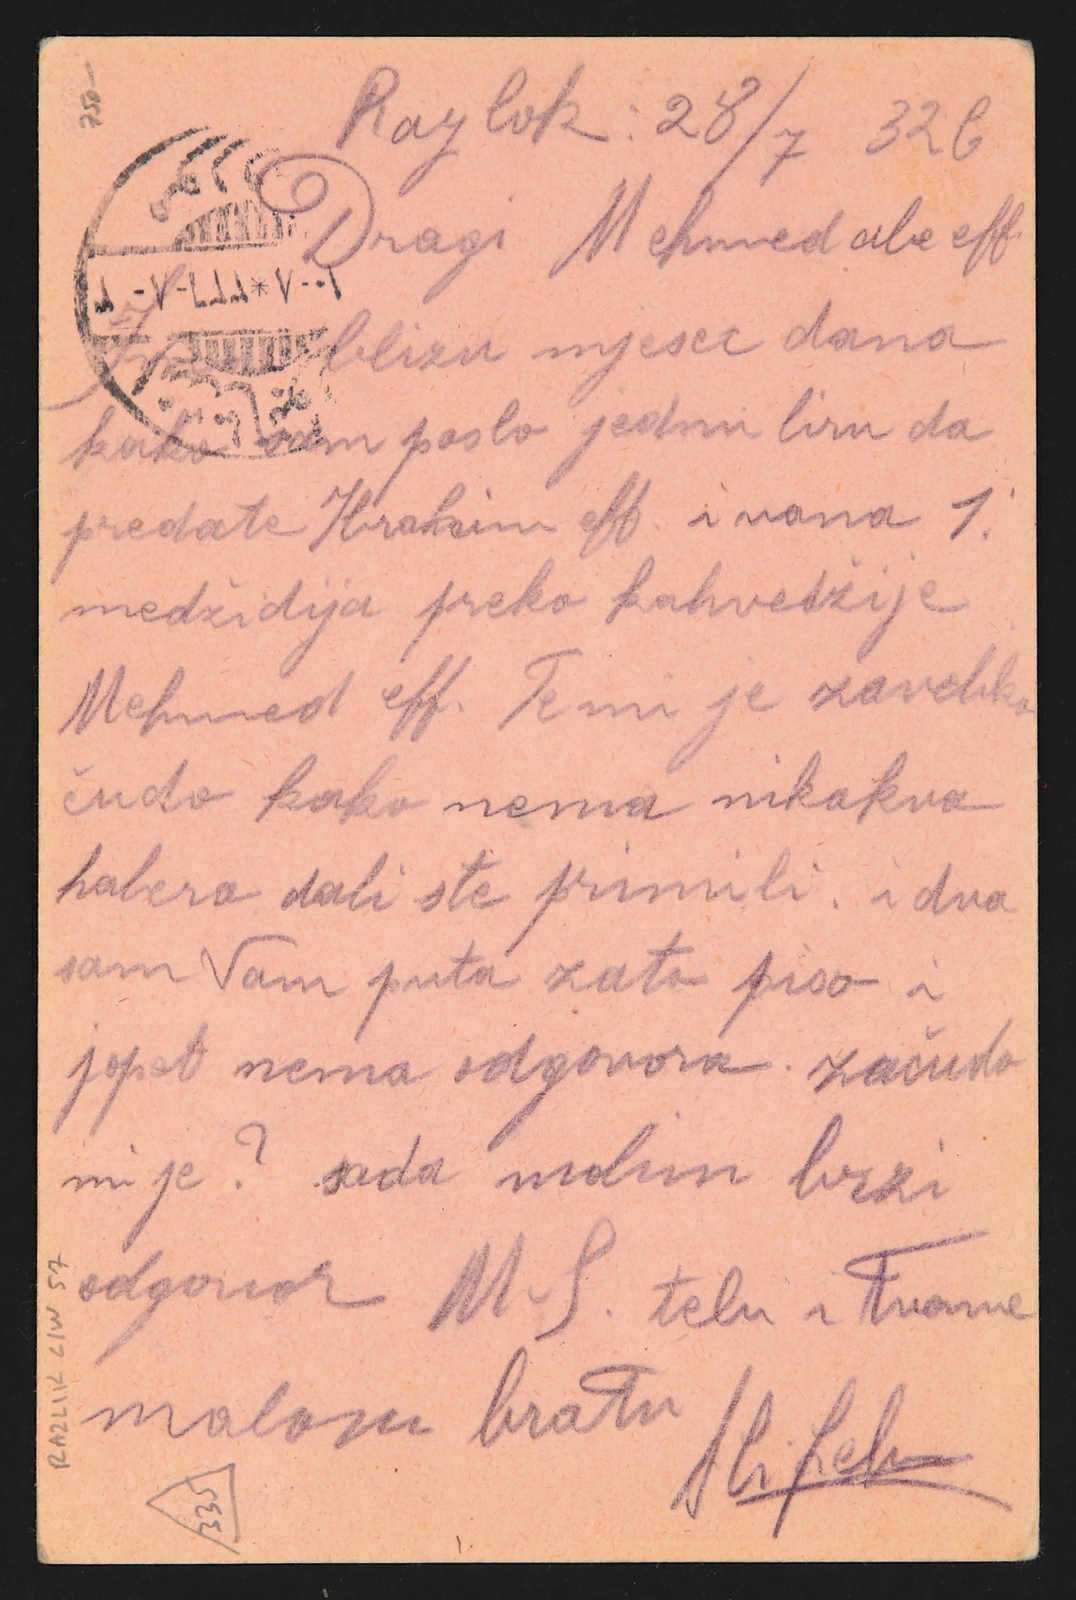 Raylok: 28/7 326
Dragi Mehmed abe eff.
Ima blizu mjesec dana
kako sam poslo jednu liru da
predate Ibrahim eff. i vama 1.
medžidija preko kahvedžije
Mehmed eff. Te mi je zaveliko
čudo kako nema nikakva
habera dali ste primili. i dva
sam Vam puta zato piso i
jopet nema odgovora. začudo
mi je? sada molim brzi
odgovor M. S. tebi i Tvome
malom bratu
750-
RAZLIK LIW 57
335